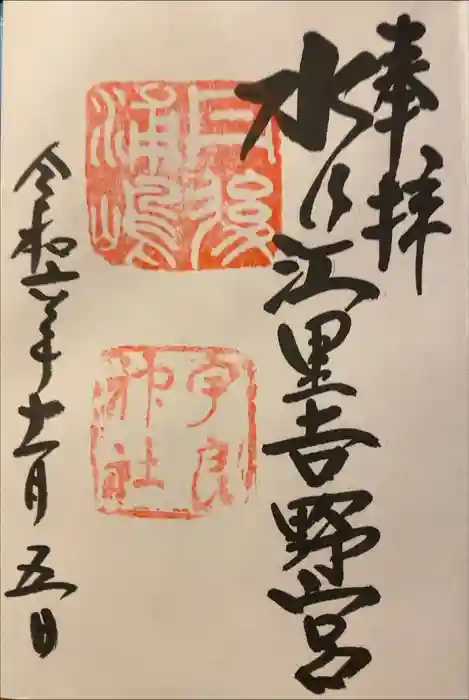 奉拝
水乃江里吉野宮
丹後
浦嶋
宇良
神社
令和六年十一月五日